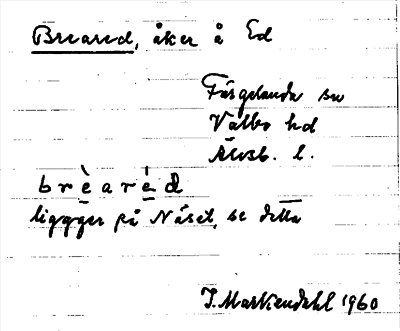 Breared, åker å Ed
Färgelanda sn
Valbo hd
Älvsb. l.
brèaréd
ligger på Näset, se detta
J. Markendahl 1960